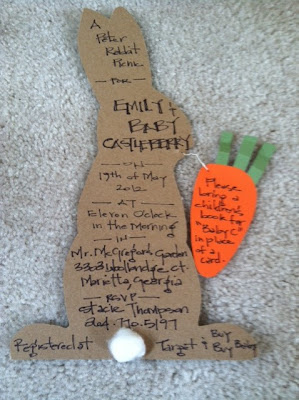 A
Peter
Rabbit
Picnic
FOR
EMILY +
BABY
CASTLEBERRY
ON
19th of May
2012
AT
Eleven O'clock
in the Morning
IN
Mr. McGregor's Garden
Ct.
Marietta, Georgia
RSVP
Stacie Thompson
770.5197
Registered at
Target + Buy
Buy Baby
Please
bring a
children's
book for
"Baby C"
in place
of a
card.